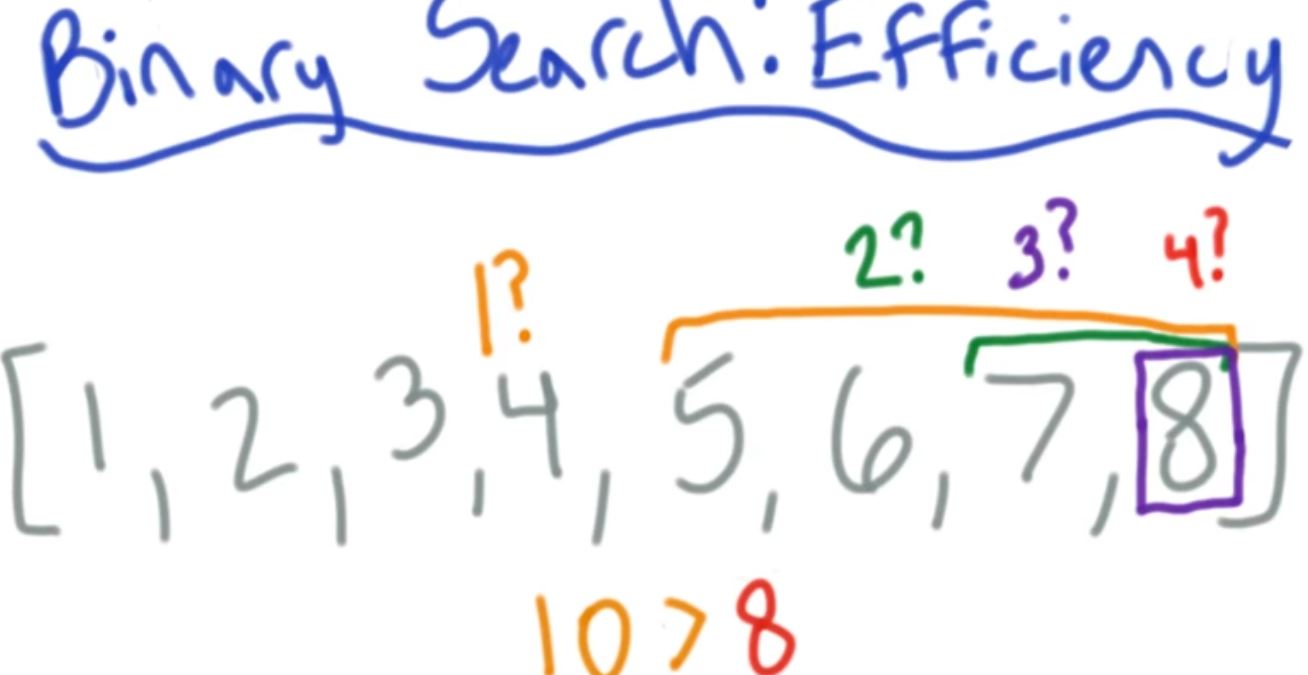 Binary Search: Efficiency
1? 2? 3? 4?
[1, 2, 3, 4, 5, 6, 7, 8]
10 > 8